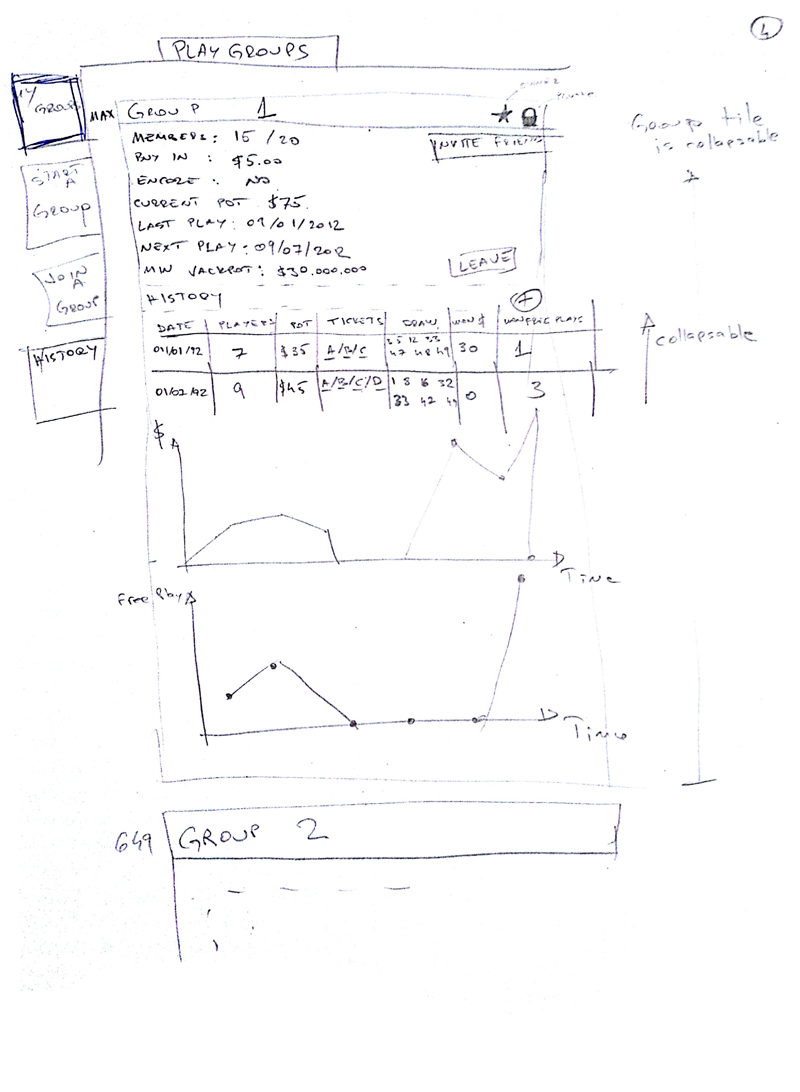 4
PLAY GROUPS
MY GROUP
START A GROUP
JOIN A GROUP
HISTORY
MAX GROUP 1
MEMBERS: 15 / 20
INVITE FRIEND
BUY IN : $5.00
ENCORE : NO
CURRENT POT $75.
LAST PLAY: 09/01/2012
NEXT PLAY: 09/07/2012
MIN JACKPOT: $30.000.000
LEAVE
Group tile
is collapsable
HISTORY
+
DATE PLAYERS POT TICKETS DRAW WON $ WON FREE PLAYS
01/01/92 7 $35 A/B/C 3 5 12 33 47 48 49 30 1
01/02/92 9 $45 A/B/C/D 1 8 16 32 33 42 49 0 3
collapsable
$
Time
Free Play
Time
649 GROUP 2